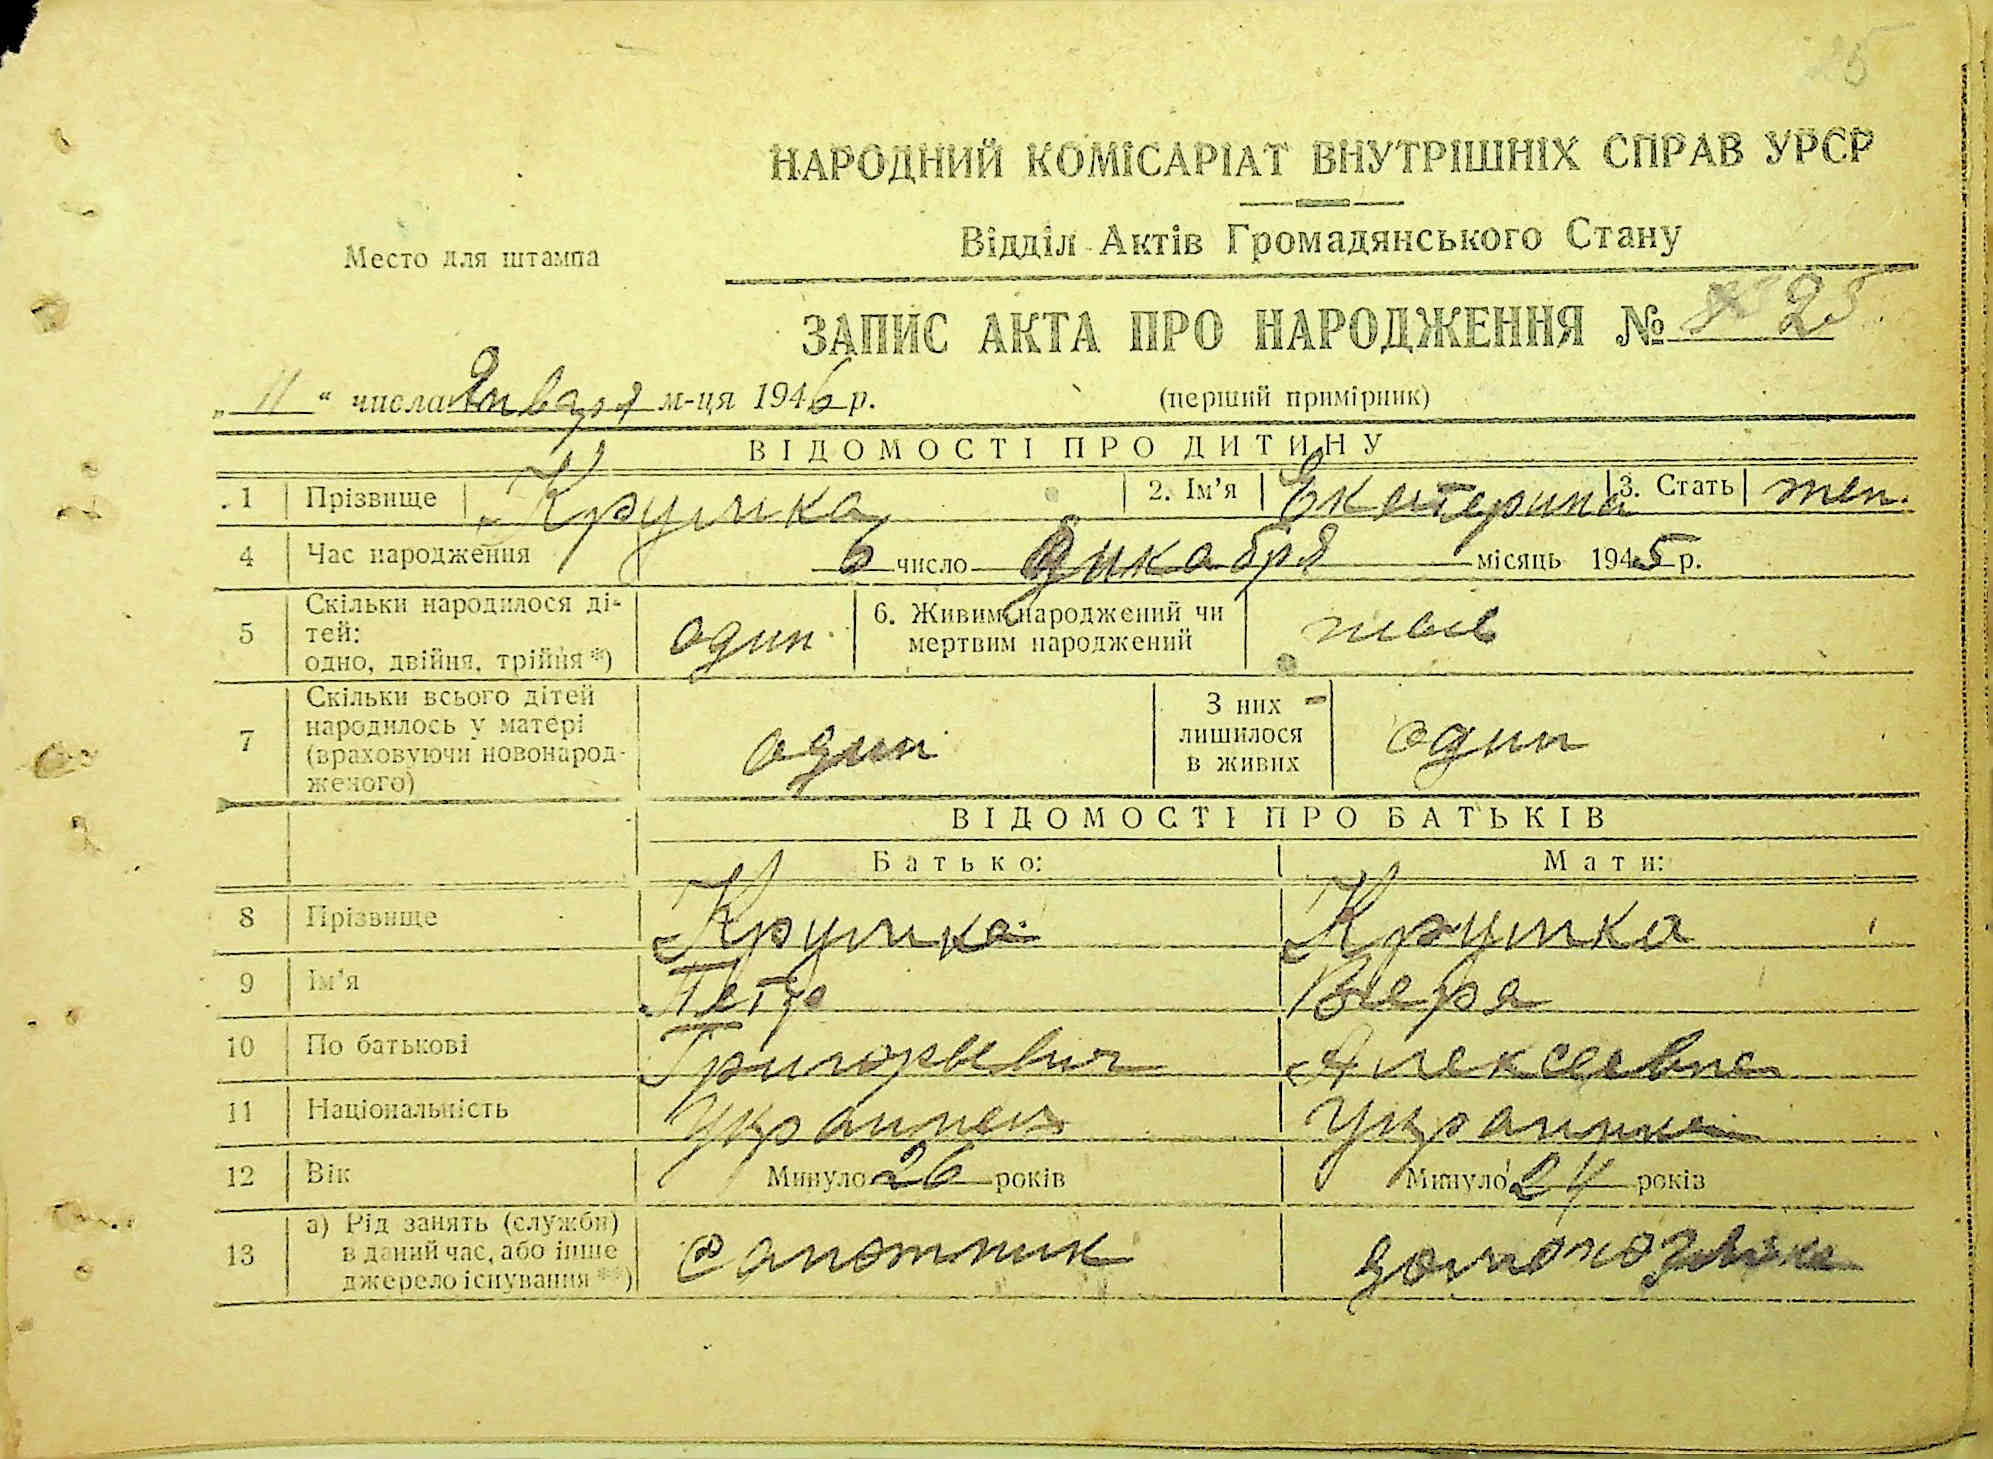 25
НАРОДНИЙ КОМІСАРІАТ ВНУТРІШНІХ СПРАВ УРСР
Место для штампа
Відділ Актів Громадянського Стану
ЗАПИС АКТА ПРО НАРОДЖЕННЯ № 25
„ 11 “ числа Января м-ця 1946 р. (перший примірник)
ВІДОМОСТІ ПРО ДИТИНУ
1 Прізвище Крушка 2. Ім'я Екатерина 3. Стать жен.
4 Час народження 6 число Дикабря місяць 1945 р.
5 Скільки народилося ді-
тей:
одно, двійня, трійня *) один
6. Живим народжений чи
мертвим народжений
7 Скільки всього дітей
народилось у матері
(враховуючи новонарод-
женого) один
З них
лишилося
в живих один
ВІДОМОСТІ ПРО БАТЬКІВ
Батько: Мати:
8 Прізвище Крушка Крушка
9 Ім'я Петро Вера
10 По батькові Григорьевич Алексеевна
11 Національність Украинец Украинка
12 Вік Минуло 26 років Минуло 24 років
13 а) Рід занять (служби)
в даний час, або інше
джерело існування **) Сапожник